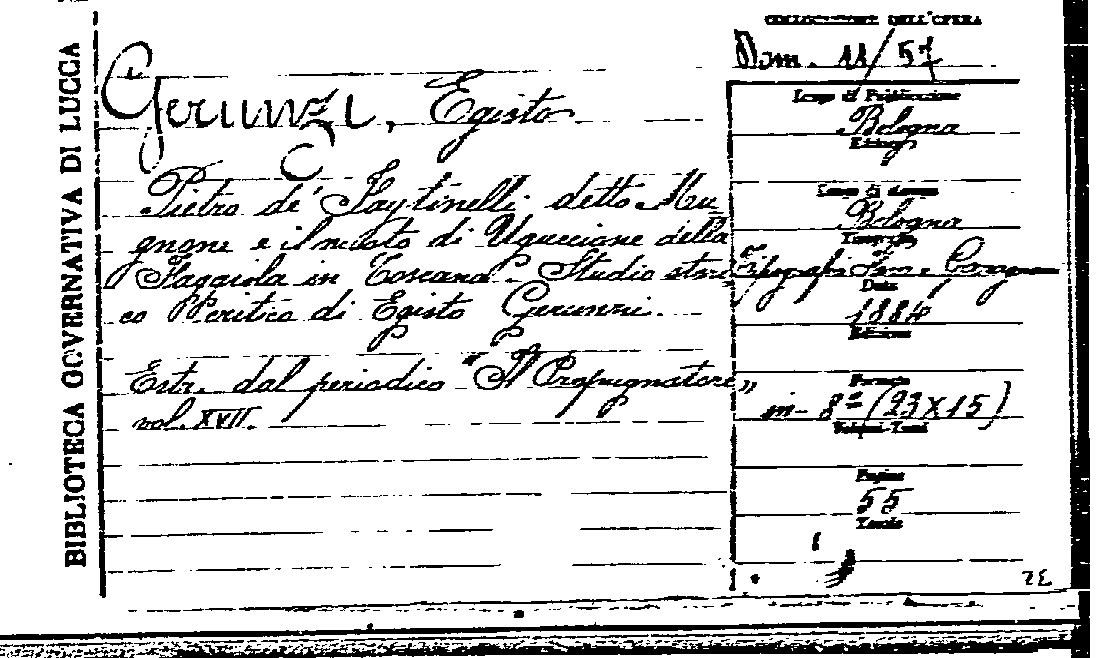 BIBLIOTECA GOVERNATIVA DI LUCCA
COLLOCAZIONE DELL'OPERA
Dom. 11/57
Gerunzi, Egisto
Pietro de' Faytinelli detto Mu_
gnone e il moto di Uguccione della
Faggiola in Toscana - Studio stori
co critico di Egisto Gerunzi.
Estr. dal periodico "Il Propugnatore"
vol. XVII.
Luogo di Pubblicazione
Bologna
Luogo di stampa
Bologna
Tipografo
Tipografia Fava e Garagnani
Data
1884
Edizione
Formato
in-8º (23X15)
Volumi-Tomi
Pagine
55
Tavole